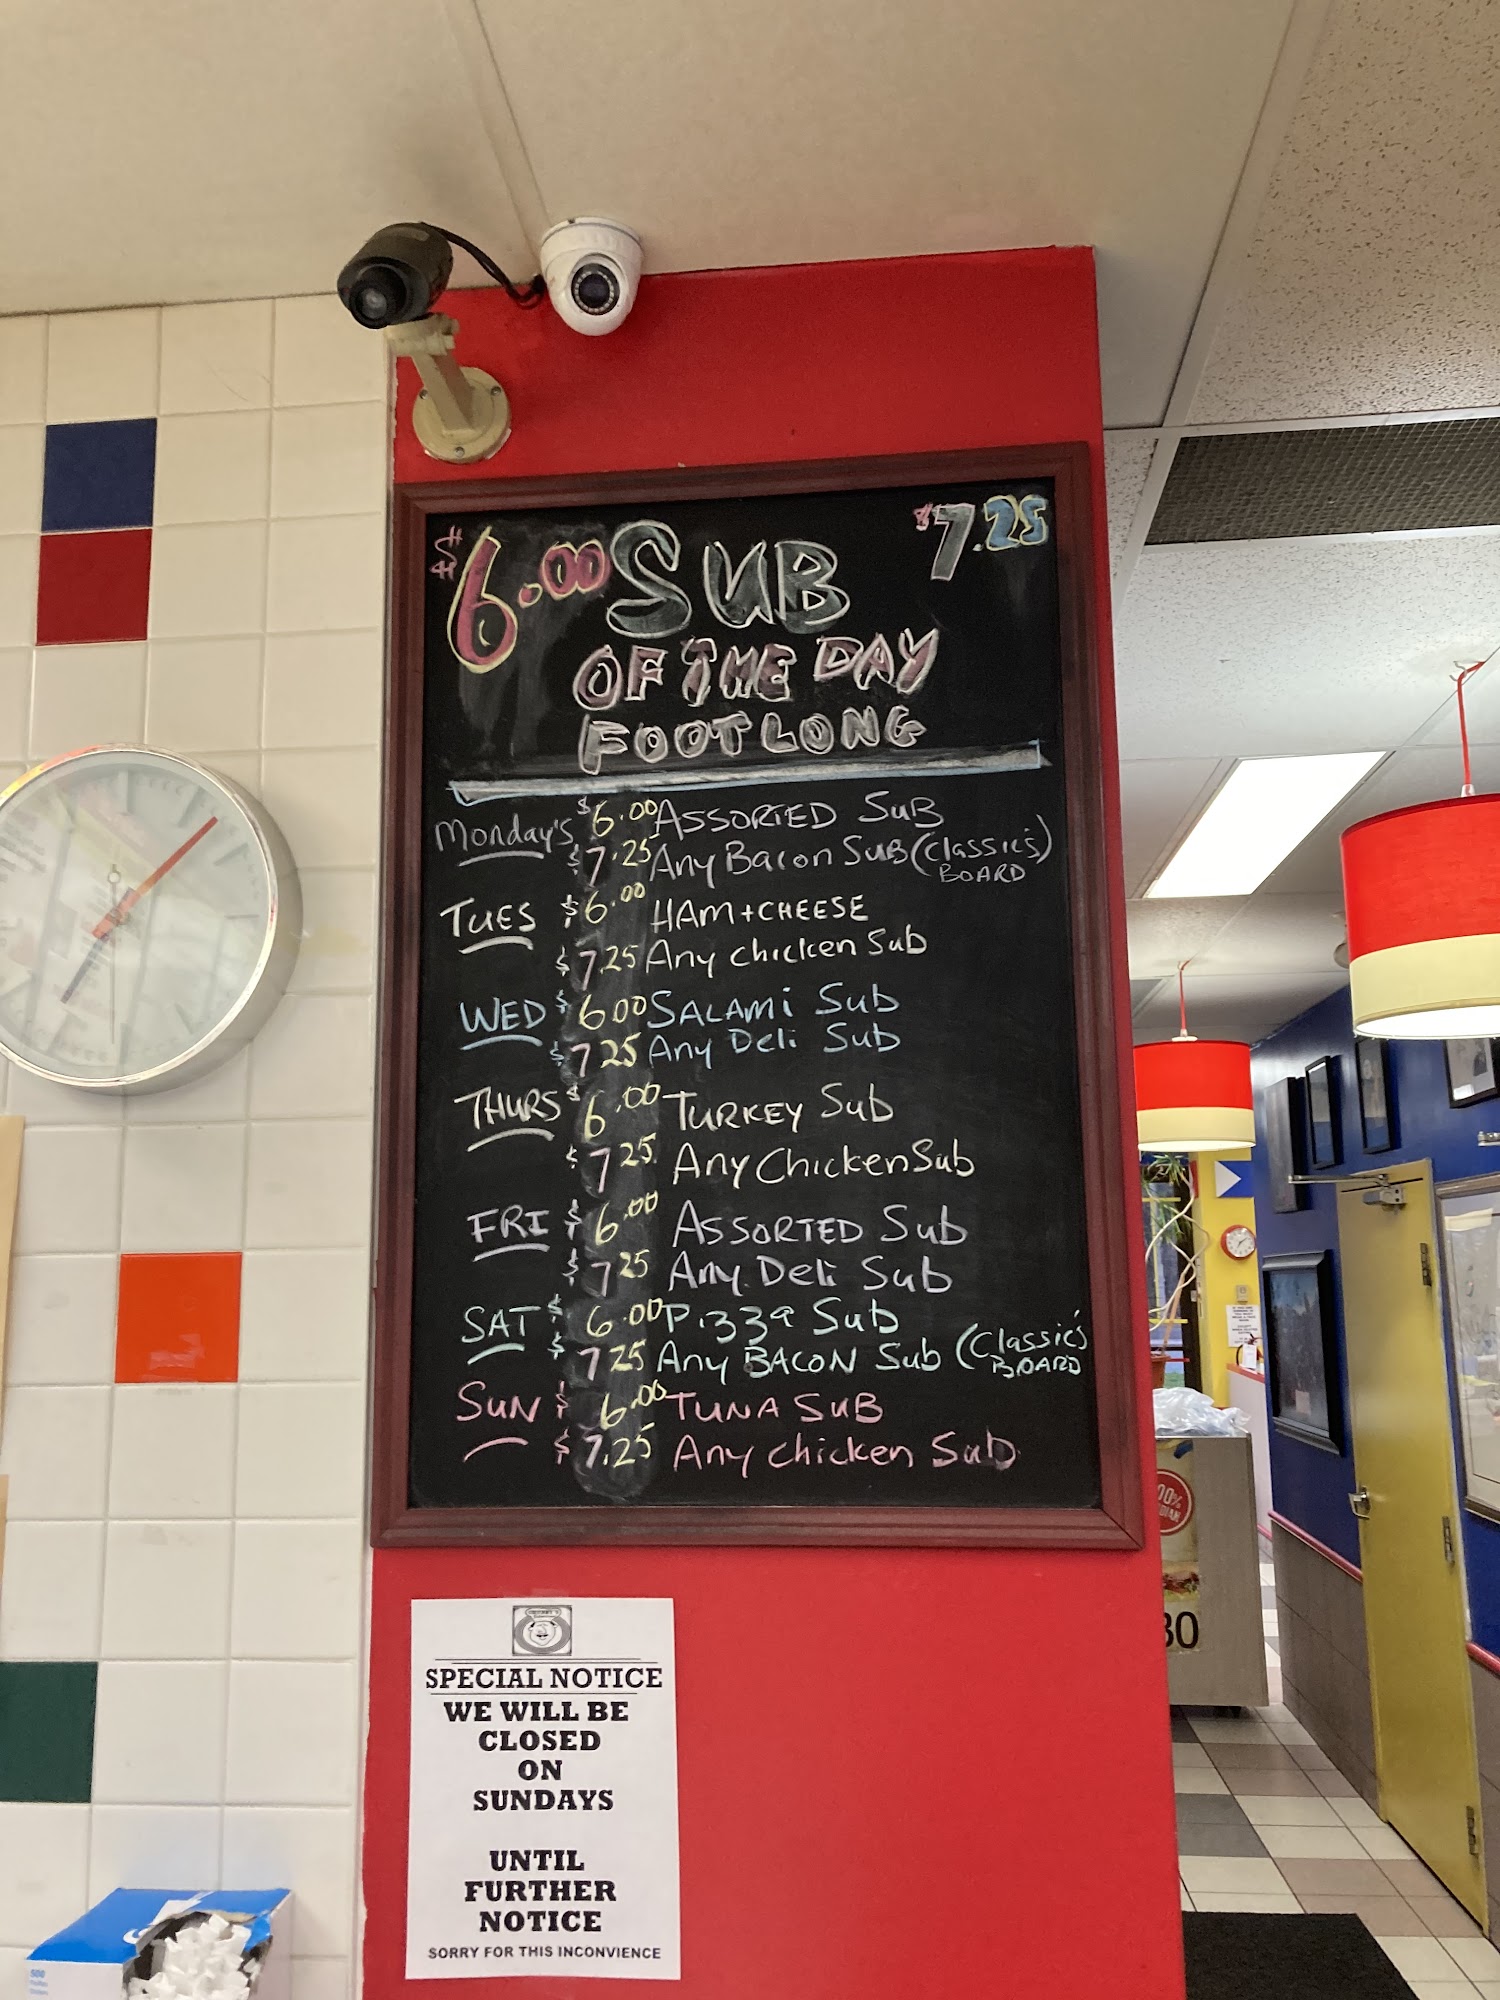 $6.00 SUB $7.25
OF THE DAY
FOOTLONG
Monday's $6.00 ASSORTED SUB
$7.25 Any Bacon SUB (Classic's)
BOARD
TUES $6.00 HAM+CHEESE
$7.25 Any chicken Sub
WED $6.00 SALAMi Sub
$7.25 Any Deli Sub
THURS $6.00 TURKEY Sub
$7.25 Any Chicken Sub
FRI $6.00 ASSORTED Sub
$7.25 Any Deli Sub
SAT $6.00 Pizza Sub
$7.25 Any BACON Sub (Classic's
BOARD
SUN $6.00 TUNA SUB
$7.25 Any chicken Sub
SPECIAL NOTICE
WE WILL BE
CLOSED
ON
SUNDAYS
UNTIL
FURTHER
NOTICE
SORRY FOR THIS INCONVIENCE
500